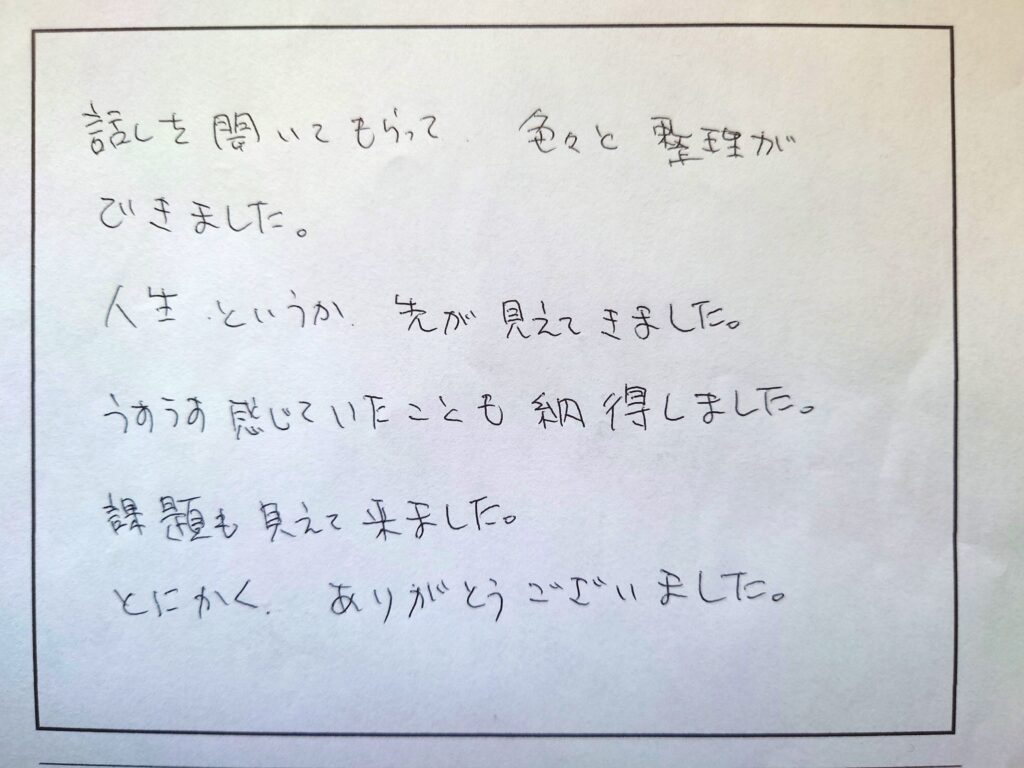 話しを聞いてもらって、色々と整理が
できました。
人生、というか、先が見えてきました。
うすうす感じていたことも納得しました。
課題も見えて来ました。
とにかく、ありがとうございました。